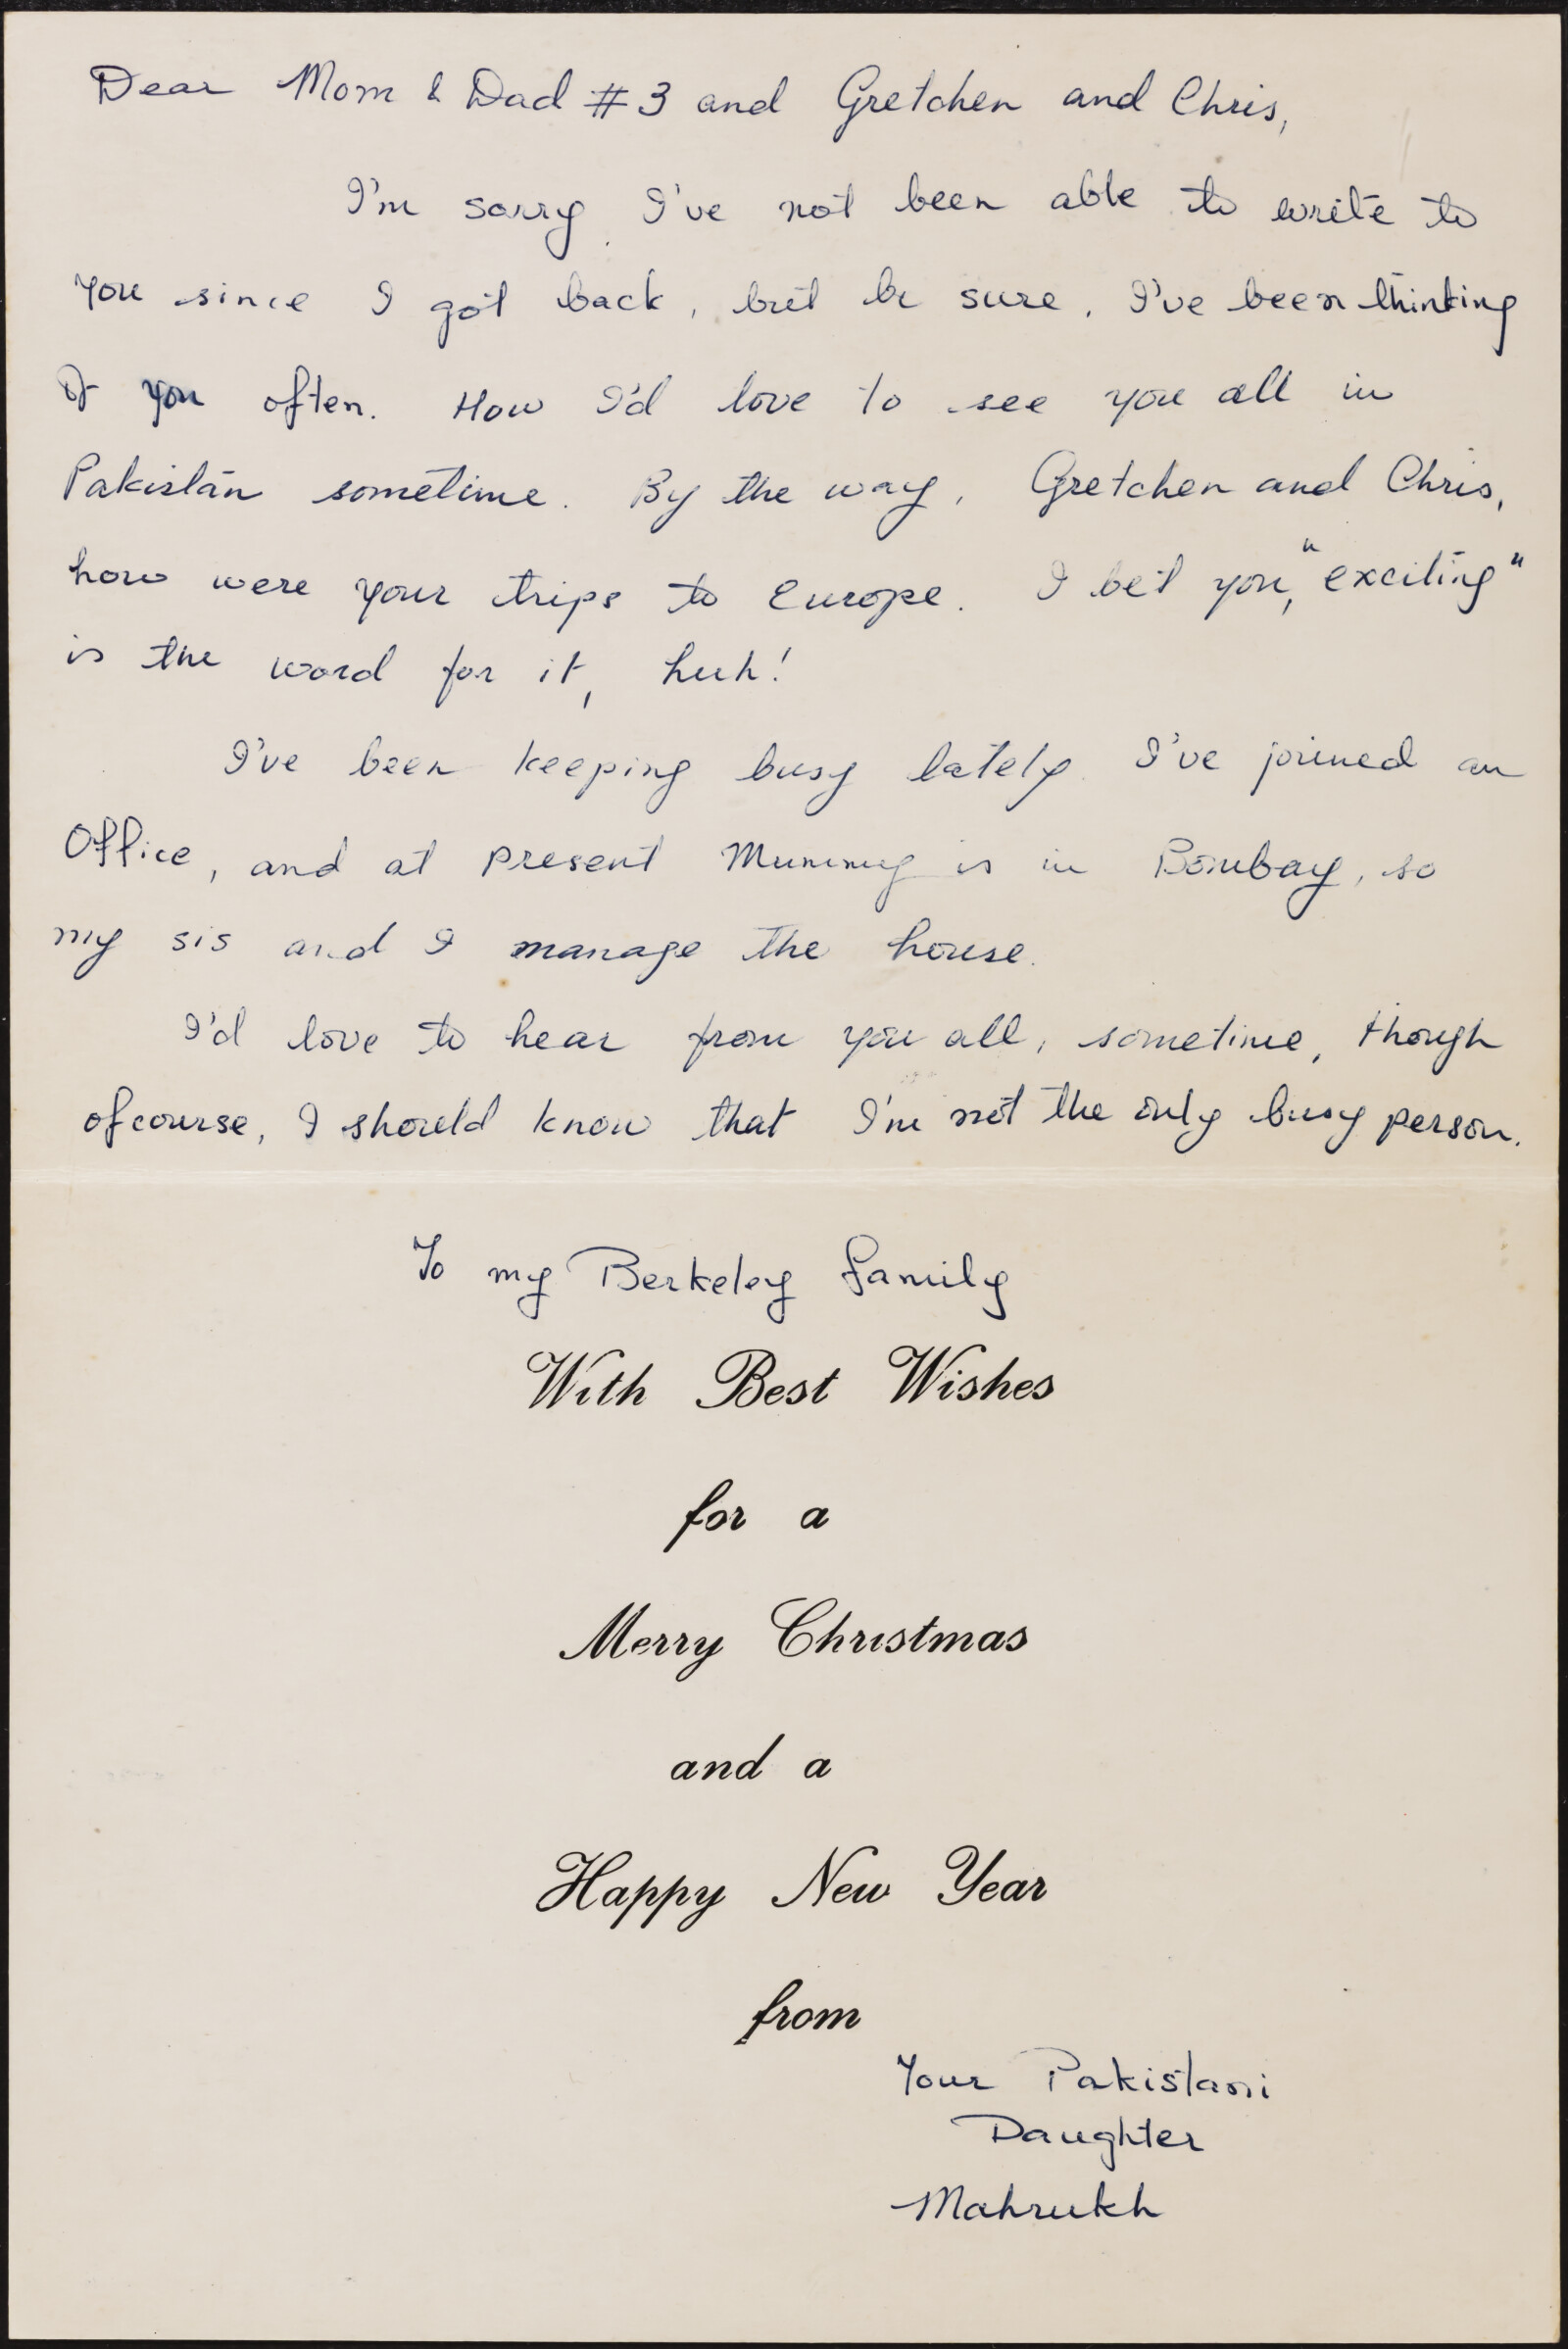 Dear Mom & Dad #3 and Gretchen and Chris,
I'm sorry I've not been able to write to
you since I got back, but be sure, I've been thinking
of you often. How I'd love to see you all in
Pakistan sometime. By the way, Gretchen and Chris,
how were your trips to Europe. I bet you, "exciting"
is the word for it, huh!
I've been keeping busy lately. I've joined an
Office, and at present Mummy is in Bombay, so
my sis and I manage the house.
I'd love to hear from you all, sometime, though
ofcourse, I should know that I'm not the only busy person.
To my Berkeley family
With Best Wishes
for a
Merry Christmas
and a
Happy New Year
from
Your Pakistani
Daughter
Mahrukh